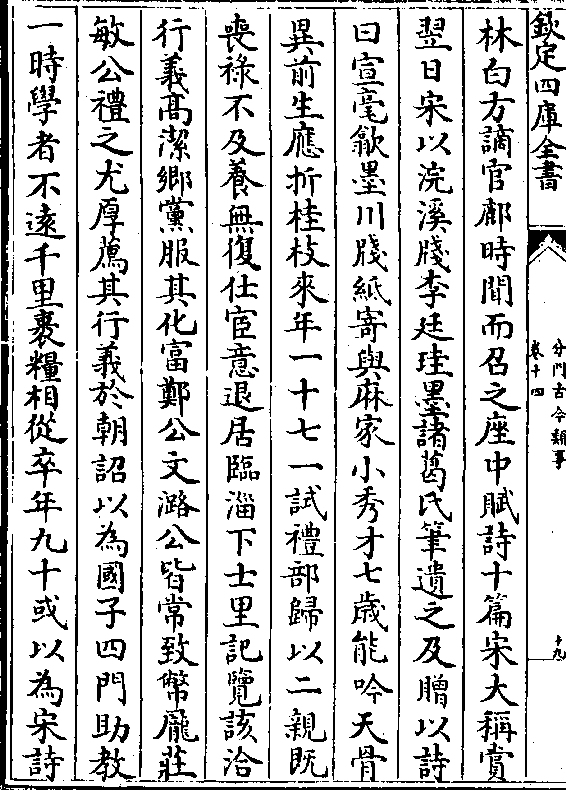 欽定四庫全書
分門古今類事
卷十四
十九
林白方謫官鄜時聞而召之座中賦詩十篇宋大稱賞
翌日宋以浣溪牋李廷珪墨諸葛氏筆遺之及贈以詩
曰宣毫歙墨川牋紙寄與麻家小秀才七歳能吟天骨
異前生應折桂枝來年一十七一試禮部歸以二親既
喪祿不及養無復仕宦意退居臨淄下士里記覽該洽
行義髙潔鄉黨服其化富鄭公文潞公皆常致幣龎莊
敏公禮之尤厚薦其行義於朝詔以為國子四門助教
一時學者不逺千里裹糧相從卒年九十或以為宋詩